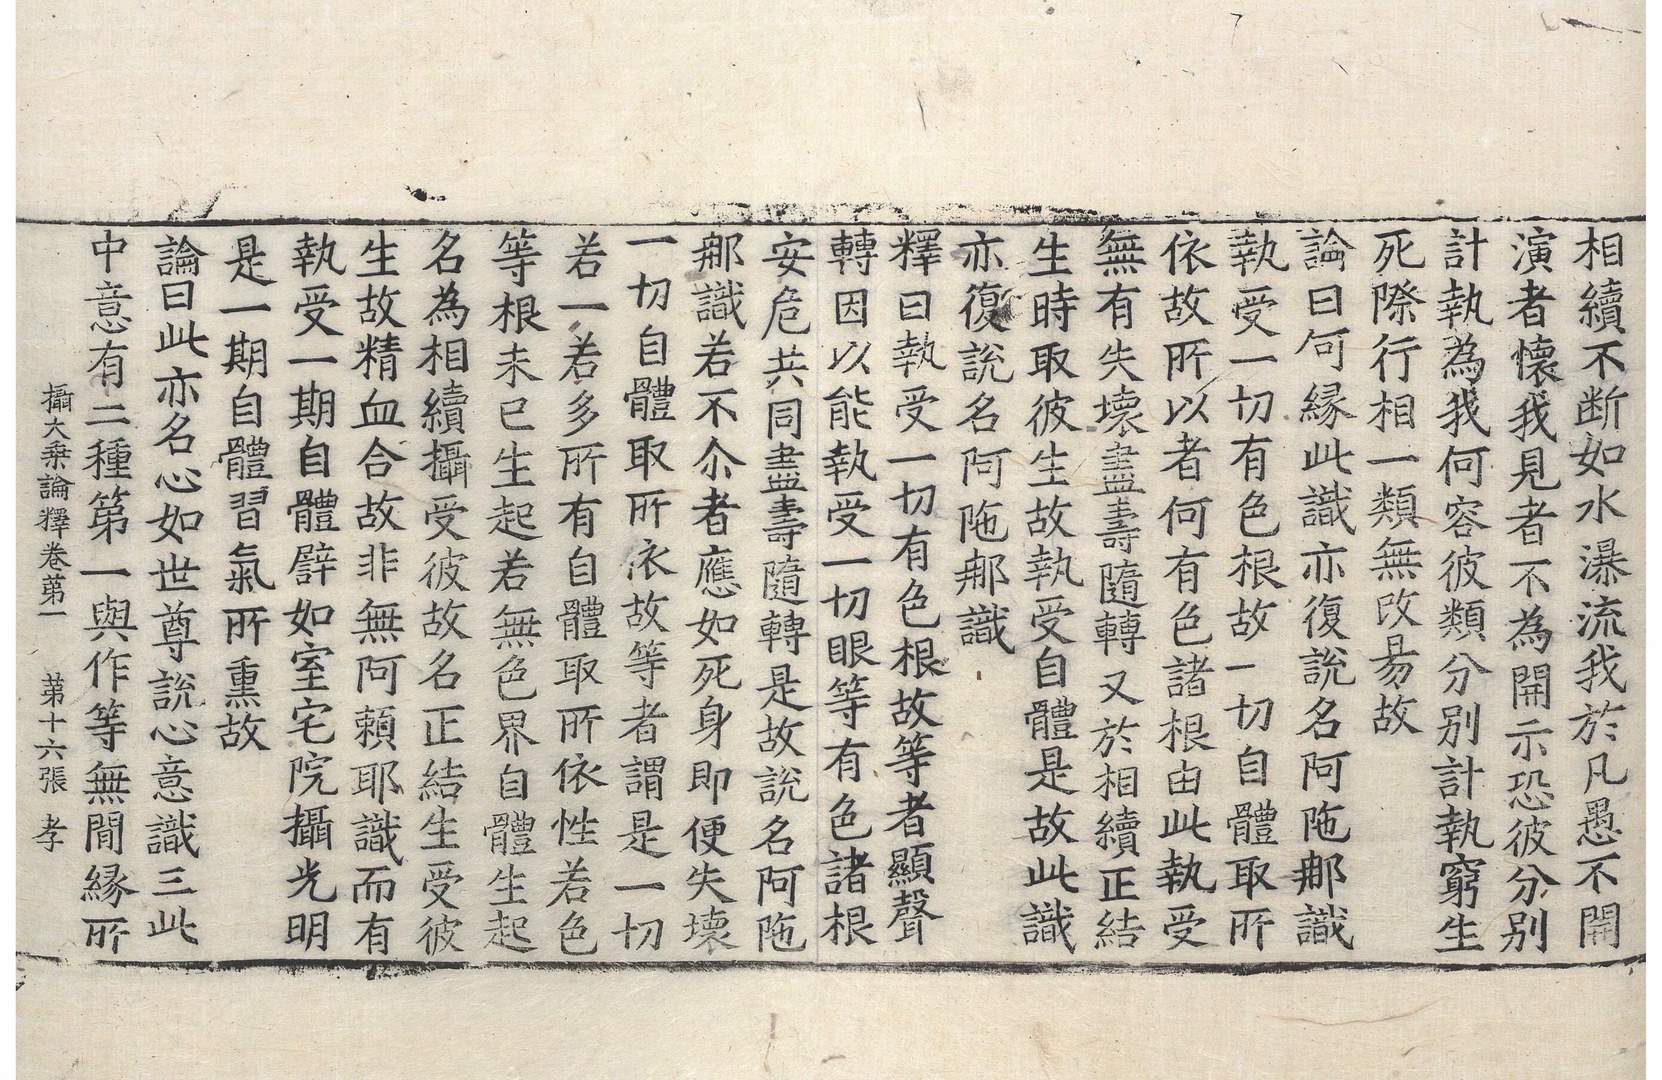 相續不断如水瀑流我於凡愚不開
演者懷我見者不為開示恐彼分别
計執為我何容彼類分别計執窮生
死際行相一類無改易故
論曰何縁此識亦復說名阿陁𨙻識
執受一切有色根故一切自體取所
依故所以者何有色諸根由此執受
無有失壞盡壽隨轉又於相續正結
生時取彼生故執受自體是故此識
亦復說名阿陁𨙻識
釋曰執受一切有色根故等者顯聲
轉因以能執受一切眼等有色諸根
安危共同盡壽隨轉是故說名阿陁
𨙻識若不尒者應如死身即便失壞
一切自體取所依故等者謂是一切
若一若多所有自體取所依性若色
等根未已生起若無色界自體生起
名為相續攝受彼故名正結生受彼
生故精血合故非無阿賴耶識而有
執受一期自體譬如室宅院攝光明
是一期自體習氣所熏故
論曰此亦名心如世尊說心意識三此
中意有二種第一與作等無間縁所
攝大乗論釋卷苐一　苐十六張　孝